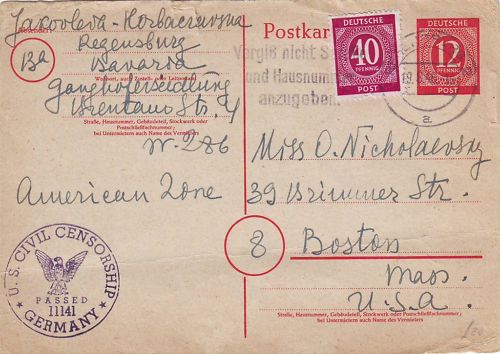 Absender:
Jakovleva-Korbaczavsna
Regensburg
13a
Bavaria
Wohnort, auch Zustell- oder Leitpostamt
Ganghofersiedlung
Brentano Str. 4
Straße, Hausnummer, Gebäudeteil, Stockwerk oder
Postschließfachnummer;
bei Untermietern auch Name des Vermieters
W. 286
American Zone
U.S. CIVIL CENSORSHIP
PASSED
11141
GERMANY
Postkar
DEUTSCHE
40
PFENNIG
POST
DEUTSCHE
12
PFENNIG
POST
Vergiß nicht S
und Hausnumm
anzugeben.
a
Miss O. Nicholaevsky
39 Brimmer Str.
8 Boston
Mass.
U.S.a.
Straße, Hausnummer, Gebäudeteil, Stockwerk oder Postschließfachnummer;
bei Untermietern auch Name des Vermieters